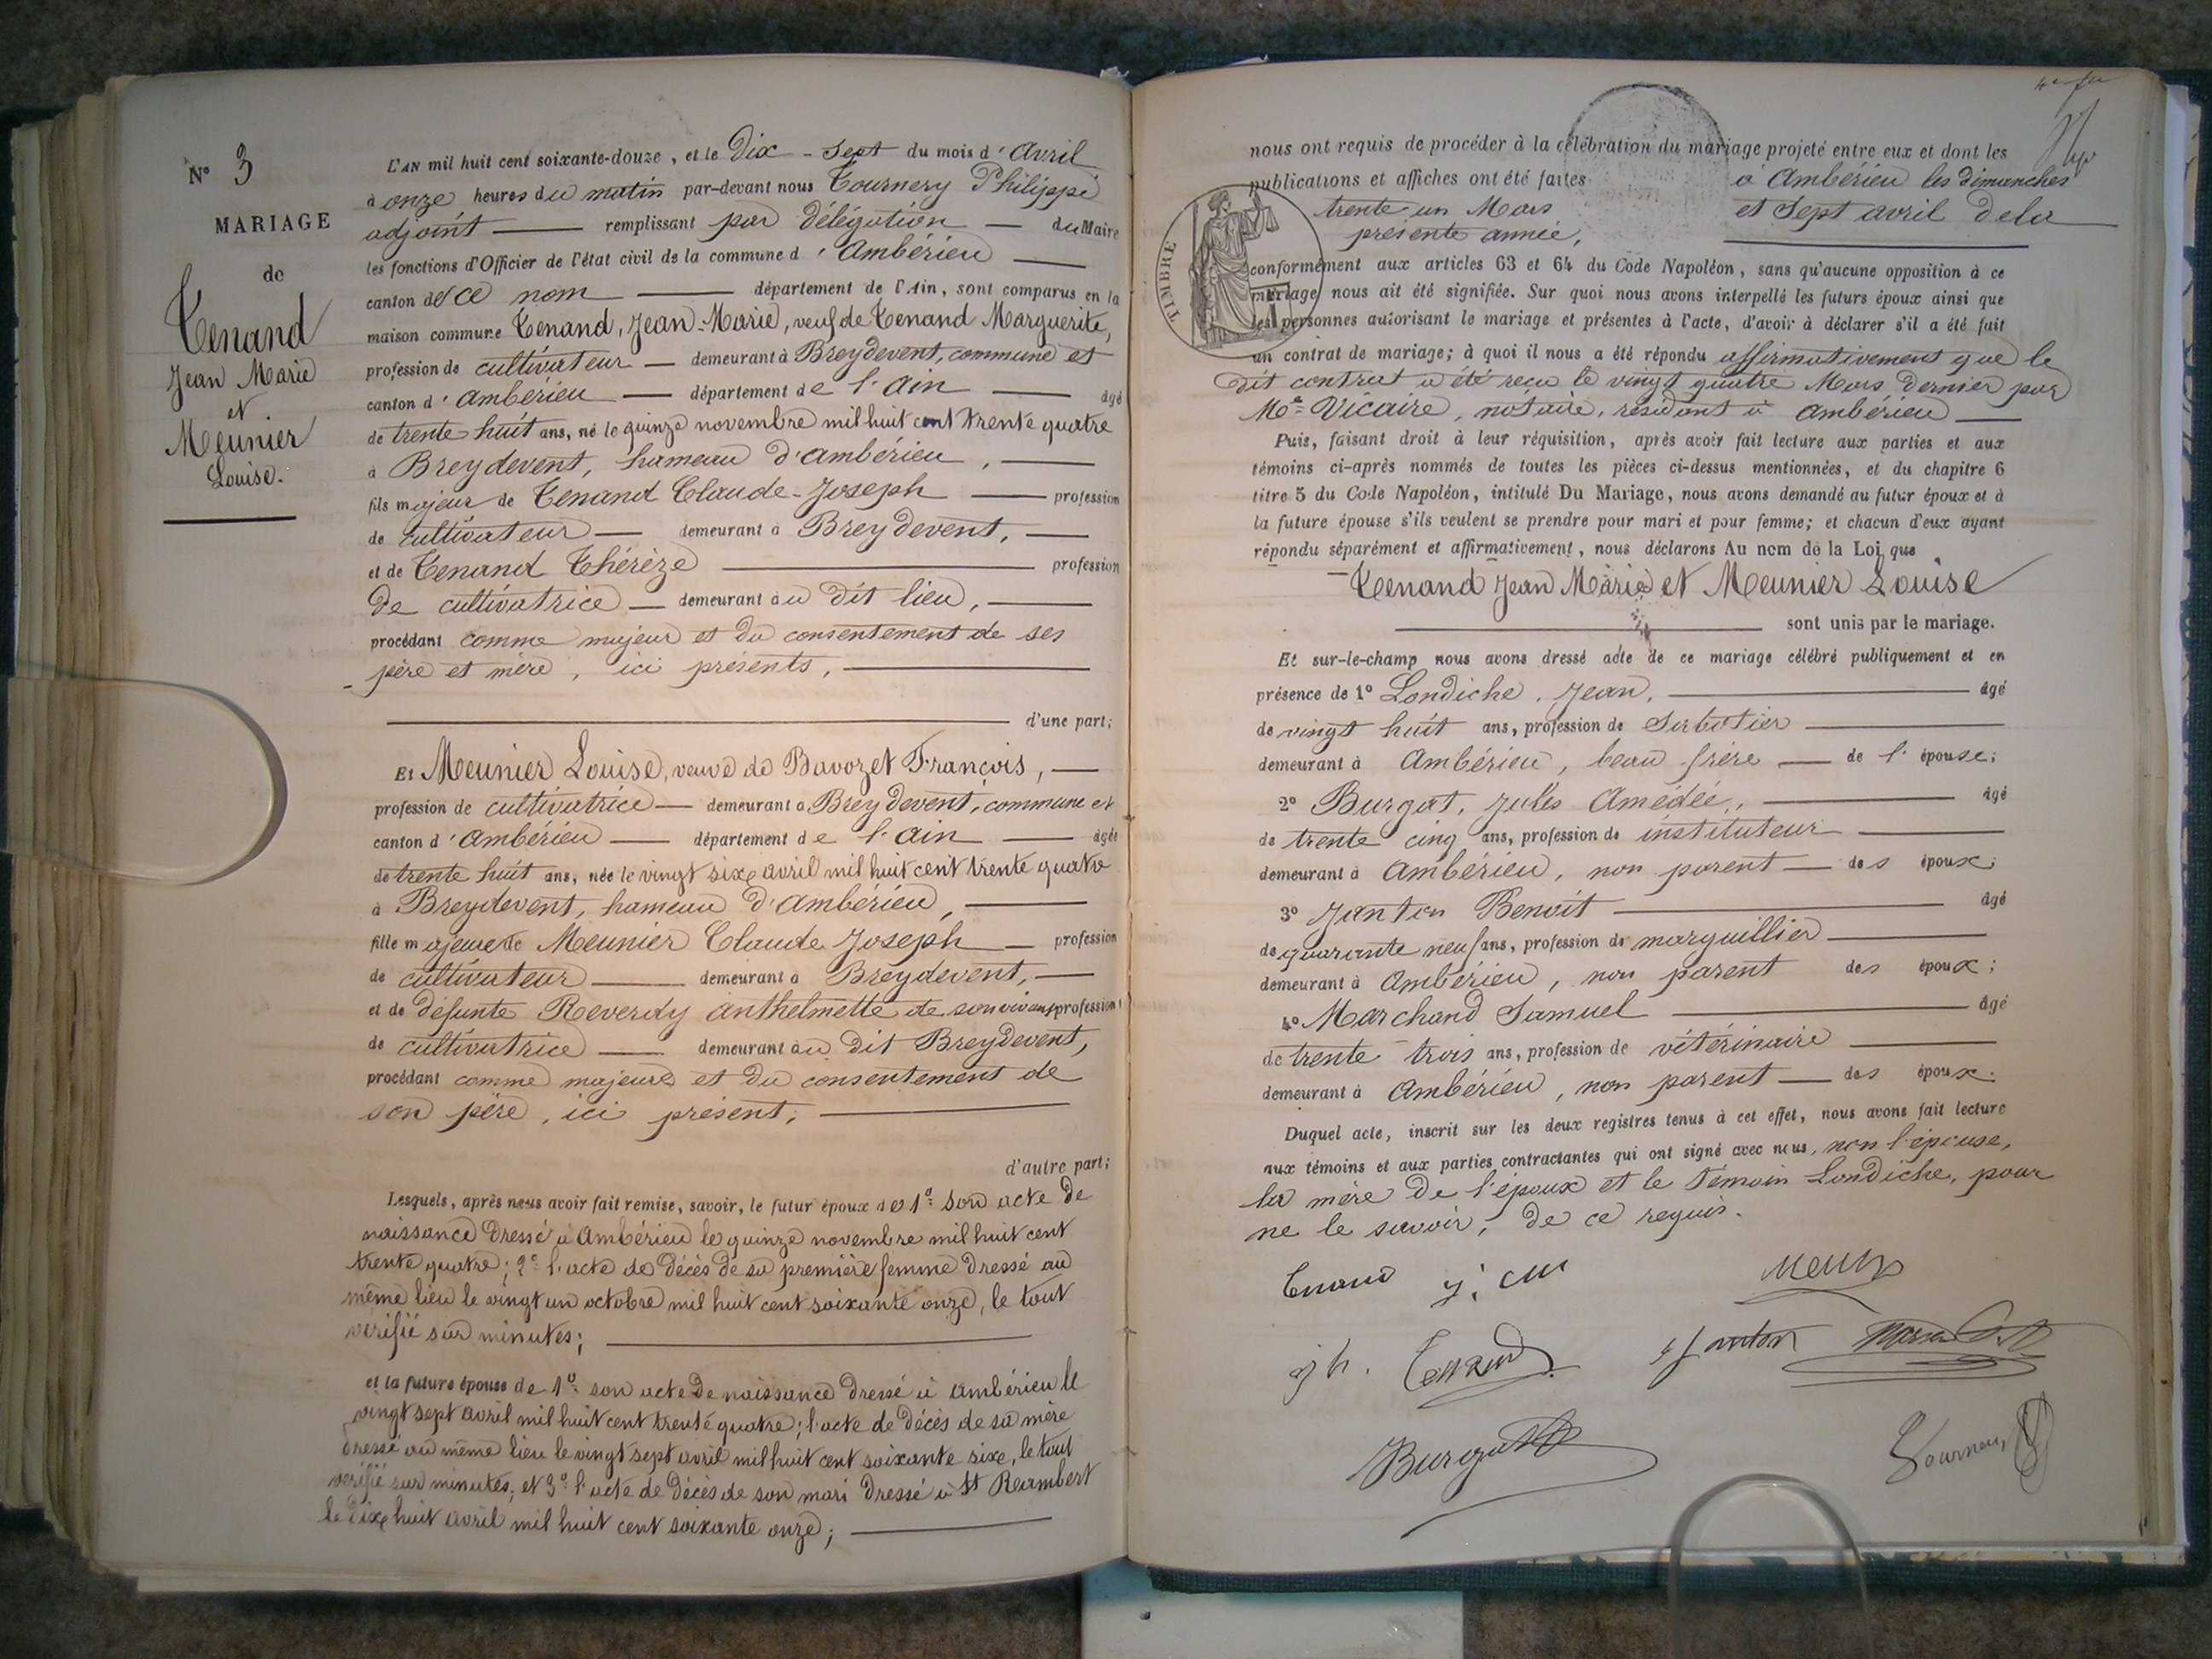 N° 3
MARIAGE
de
Tenand
Jean Marie
et
Meunier
Louise.
L'AN mil huit cent soixante-douze, et le Dix-Sept du mois d'Avril
à onze heures du matin par-devant nous Tournery Philippe
adjoint remplissant par délégation du Maire
les fonctions d'Officier de l'état civil de la commune d'Ambérieu
canton de ce nom département de l'Ain, sont comparus en la
maison commune Tenand, Jean-Marie, veuf de Tenand Marguerite,
profession de cultivateur demeurant à Breydevent, commune et
canton d'Ambérieu département de l'Ain âgé
de trente huit ans, né le quinze novembre mil huit cent trente quatre
à Breydevent, hameau d'Ambérieu,
fils majeur de Tenand Claude-Joseph profession
de cultivateur demeurant à Breydevent,
et de Tenand Thérèze profession
De cultivatrice demeurant au dit lieu,
procédant comme majeur et du consentement de ses
père et mère, ici présents,
d'une part;
Et Meunier Louise, veuve de Bavozet François,
profession de cultivatrice demeurant à Breydevent, commune et
canton d'Ambérieu département de l'Ain âgée
de trente huit ans, née le vingt sixe avril mil huit cent trente quatre
à Breydevent, hameau d'Ambérieu,
fille majeure de Meunier Claude Joseph profession
de cultivateur demeurant à Breydevent,
et de défunte Reverdy Anthelmette de son vivant profession
de cultivatrice demeurant au dit Breydevent,
procédant comme majeure et du consentement de
son père, ici présent;
d'autre part;
Lesquels, après nous avoir fait remise, savoir, le futur époux de 1° son acte de
naissance Dressé à Ambérieu le quinze novembre mil huit cent
trente quatre; 2° l'acte de décès de sa première femme Dressé au
même lieu le vingt un octobre mil huit cent soixante onze, le tout
vérifié sur minutes;
et la future épouse de 1° son acte de naissance Dressé à Ambérieu le
vingt sept avril mil huit cent trente quatre; l'acte de décès de sa mère
Dressé au même lieu le vingt sept avril mil huit cent soixante sixe, le tout
vérifié sur minutes; et 3° l'acte de décès de son mari Dressé à St Rambert
le Dixe huit avril mil huit cent soixante onze;
nous ont requis de procéder à la célébration du mariage projeté entre eux et dont les
publications et affiches ont été faites à Ambérieu les dimanches
trente un Mars et Sept avril de la
présente année,
TIMBRE
conformément aux articles 63 et 64 du Code Napoléon, sans qu'aucune opposition à ce
mariage nous ait été signifiée. Sur quoi nous avons interpellé les futurs époux ainsi que
les personnes autorisant le mariage et présentes à l'acte, d'avoir à déclarer s'il a été fait
un contrat de mariage; à quoi il nous a été répondu affirmativement que le
dit contrat a été reçu le vingt quatre Mars Dernier par
Me Vicaire, notaire, résidant à Ambérieu
Puis, faisant droit à leur réquisition, après avoir fait lecture aux parties et aux
témoins ci-après nommés de toutes les pièces ci-dessus mentionnées, et du chapitre 6
titre 5 du Code Napoléon, intitulé Du Mariage, nous avons demandé au futur époux et à
la future épouse s'ils veulent se prendre pour mari et pour femme; et chacun d'eux ayant
répondu séparément et affirmativement, nous déclarons Au nom de la Loi que
Tenand Jean Marie et Meunier Louise
sont unis par le mariage.
Et sur-le-champ nous avons dressé acte de ce mariage célébré publiquement et en
présence de 1° Londiche, Jean, âgé
de vingt huit ans, profession de Sabotier
demeurant à Ambérieu, beau frère de l'épouse;
2° Burgat, Jules Amédée, âgé
de trente cinq ans, profession de instituteur
demeurant à Ambérieu, non parent des époux;
3° Janton Benoit âgé
de quarante neuf ans, profession de marguillier
demeurant à Ambérieu, non parent des époux;
4° Marchand Samuel âgé
de trente trois ans, profession de vétérinaire
demeurant à Ambérieu, non parent des époux.
Duquel acte, inscrit sur les deux registres tenus à cet effet, nous avons fait lecture
aux témoins et aux parties contractantes qui ont signé avec nous, non l'épouse,
la mère de l'époux et le témoin Londiche, pour
ne le savoir, de ce requis.
Janton
Burgat